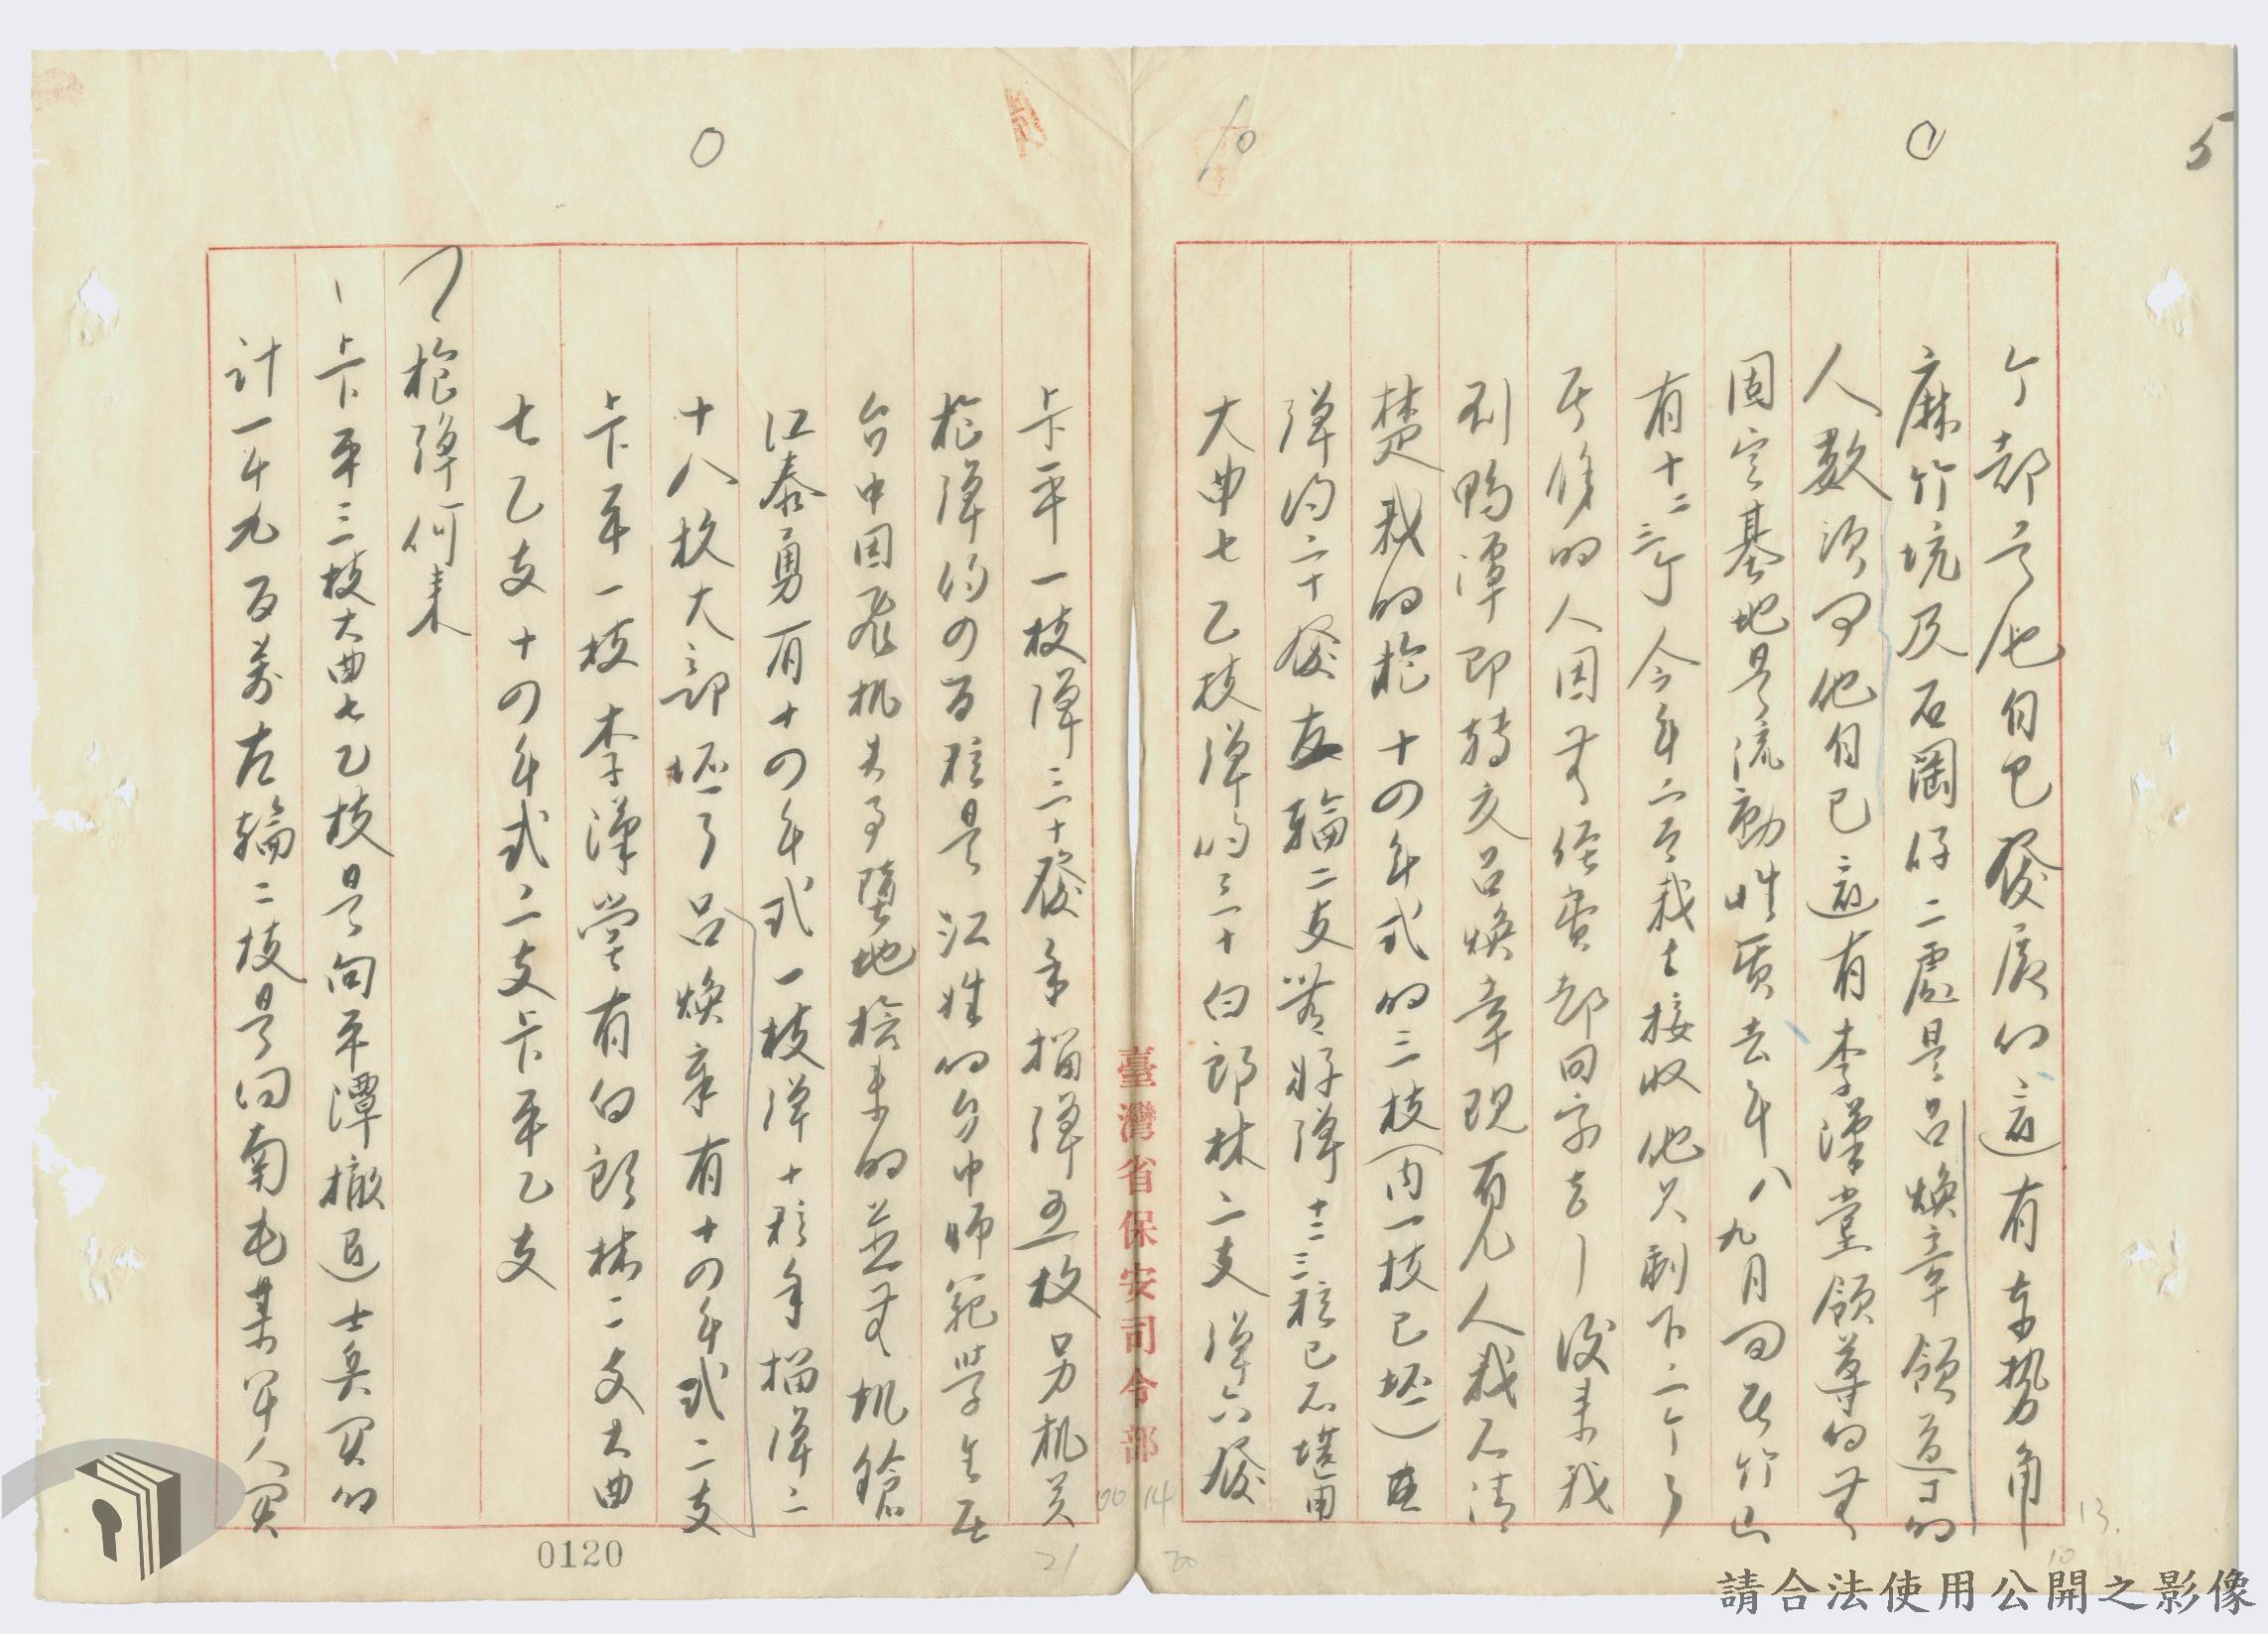 5
10
个都是他自己發展的這有東勢角
麻竹坑及石岡仔二處是呂煥章領導的
人數須問他自己這有李漢堂領導的無
固定基地是流動性質去年八九月間至竹山
有十二三个今年二月我去接收他只剩下二个了
其餘的人因無經費都回家去了後來我
到鴨潭即轉交呂煥章現有几人我不清
楚我的槍十四年式的三枝(內一枝已坯)
彈約二十發左輪二支無好彈十二三粒已不堪用
大曲七乙枝彈約三十白郎林二支彈六發
卡平一枝彈三十發手榴彈五枚另机关
槍彈約四百粒是江姓的台中師範學生在
台中因飛机失事墮地撿來的並無机鎗
江泰勇有十四年式一枝彈十粒手榴彈二
十八枚大部坯了呂煥章有十四年式二支
卡平一枝李漢堂有白郎林二支大曲
七乙支十四年式二支卡平乙支
槍彈何來
卡平三枝大曲七乙枝是向平潭撤退士兵買的
計一千九百萬左輪二枝是向南屯某軍人買
臺灣省保安司令部
00 14
13.
10
20
21
0120
請合法使用公開之影像